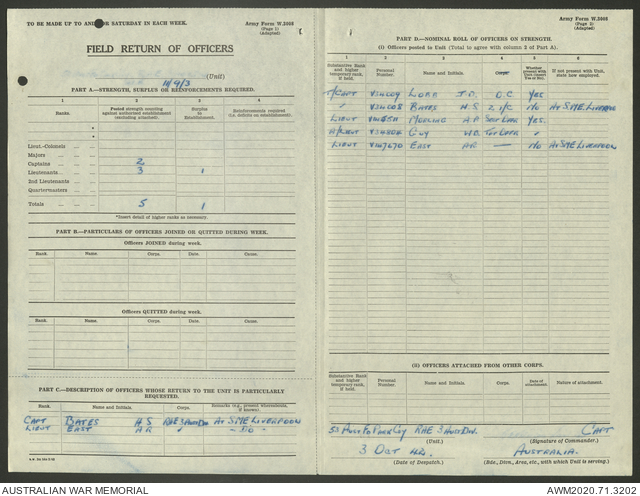 TO BE MADE UP TO AND FOR SATURDAY IN EACH WEEK.
Army Form W.3008
(Page 1)
(Adapted)
FIELD RETURN OF OFFICERS
(Unit)
PART A.—STRENGTH, SURPLUS OR REINFORCEMENTS REQUIRED.
1 2 3 4
Ranks. Posted strength counting against authorised establishment (excluding attached). Surplus to Establishment. Reinforcements required (i.e. deficits on establishment).
Lieut.-Colonels
Majors
Captains 2
Lieutenants 3 1
2nd Lieutenants
Quartermasters
Totals 5 1
*Insert detail of higher ranks as necessary.
PART B.—PARTICULARS OF OFFICERS JOINED OR QUITTED DURING WEEK.
Officers JOINED during week.
Rank. Name. Corps. Date.
Officers QUITTED during week.
Rank. Name. Corps. Date.
PART C.—DESCRIPTION OF OFFICERS WHOSE RETURN TO THE UNIT IS PARTICULARLY REQUESTED.
Rank. Name and Initials. Corps. Remarks (e.g., present whereabouts, if known).
CAPT BATES H S RAE 3 AUST DIV AT SME LIVERPOOL
LIEUT EAST A R " - DO -
Army Form W.3008
(Page 2)
(Adapted)
PART D.—NOMINAL ROLL OF OFFICERS ON STRENGTH.
(i) Officers posted to Unit (Total to agree with column 2 of Part A).
1 2 3 4 5 6
Substantive Rank and higher temporary rank, if held. Personal Number. Name and Initials. Corps. Whether present with Unit (insert Yes or No). If not present with Unit, state how employed.
T/CAPT LORD J.D. O.C YES
" BATES H S 2 I/C NO AT SME LIVERPOOL
LIEUT A P YES.
A/LIEUT GUY "
LIEUT EAST A R — NO AT SME LIVERPOOL
(ii) OFFICERS ATTACHED FROM OTHER CORPS.
Substantive Rank and higher temporary rank, if held. Personal Number. Name and Initials. Corps. Date of attachment. Nature of attachment.
RAE 3 AUST DIV. CAPT
(Unit.) (Signature of Commander.)
3 OCT 42. AUSTRALIA.
(Date of Despatch.) (Bde., Divn., Area, etc., with which Unit is serving.)
AUSTRALIAN WAR MEMORIAL
AWM2020.71.3202